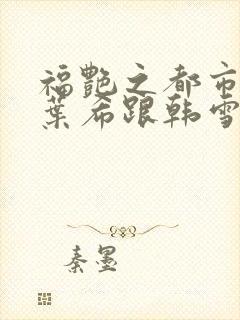 福艷之都市
葉希跟韩雪
秦墨